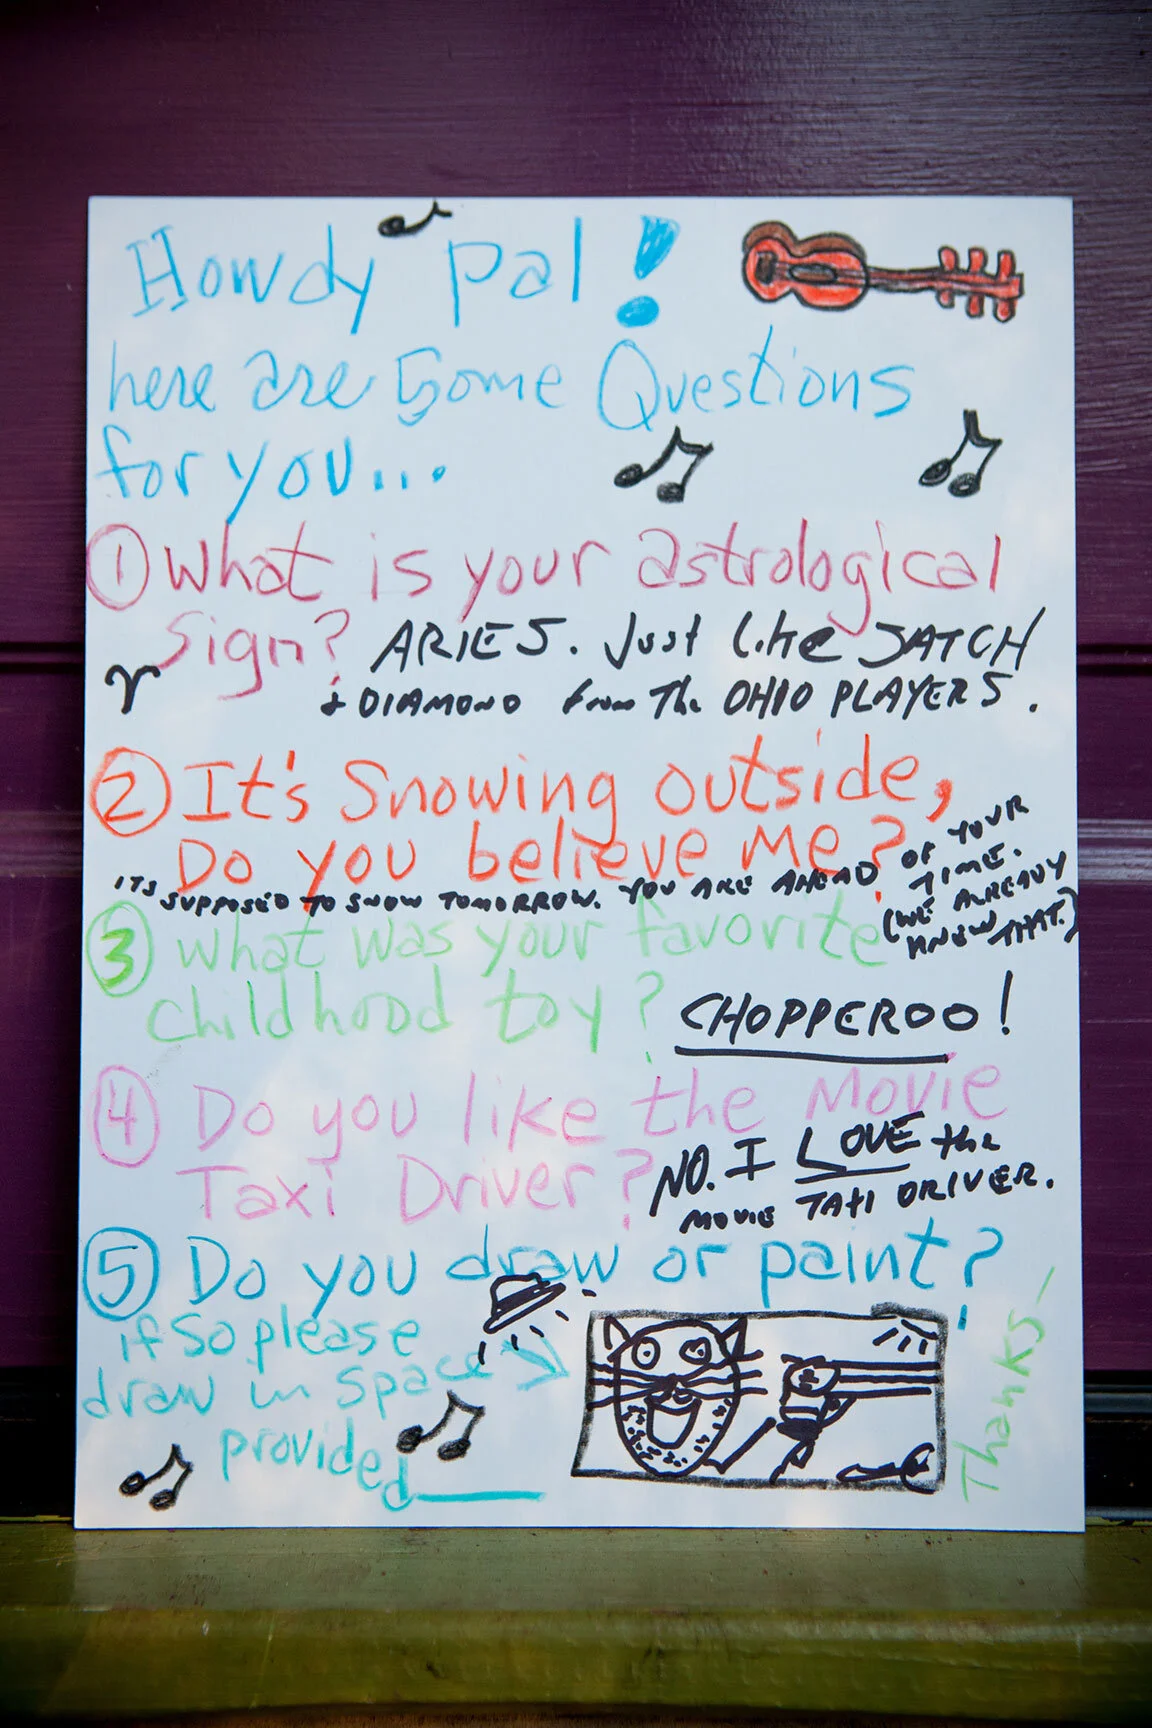 Howdy pal!
here are Some Questions
for you...
① What is your astrological
Sign? ARIES. Just Like SATCH
♈ & DIAMOND from The OHIO PLAYERS.
② It's Snowing outside,
Do you believe Me?
ITS SUPPOSED TO SNOW TOMORROW. YOU ARE AHEAD OF YOUR
TIME.
(WE ALREADY
KNEW THAT.)
③ What was your favorite
childhood toy? CHOPPEROO!
④ Do you like the Movie
Taxi Driver? NO. I LOVE the
MOVIE TAXI DRIVER.
⑤ Do you draw or paint?
if So please
draw in space
provided
Thanks—